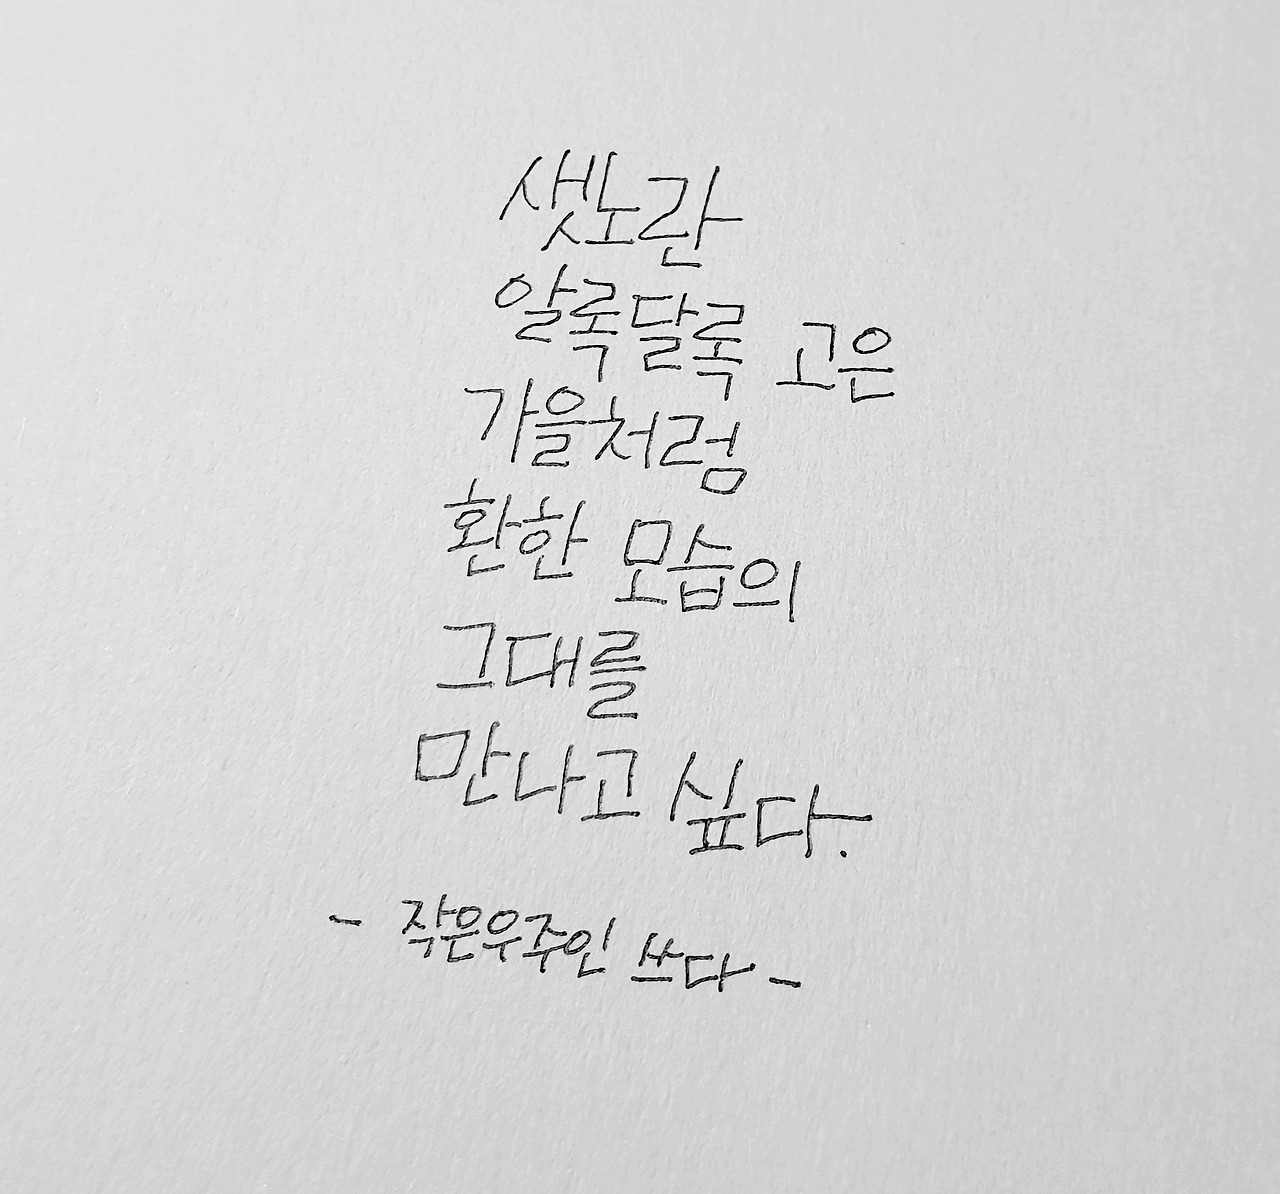 샛노란
알록달록 고은
가을처럼
환한 모습의
그대를
만나고 싶다.
- 작은우주인 쓰다 -